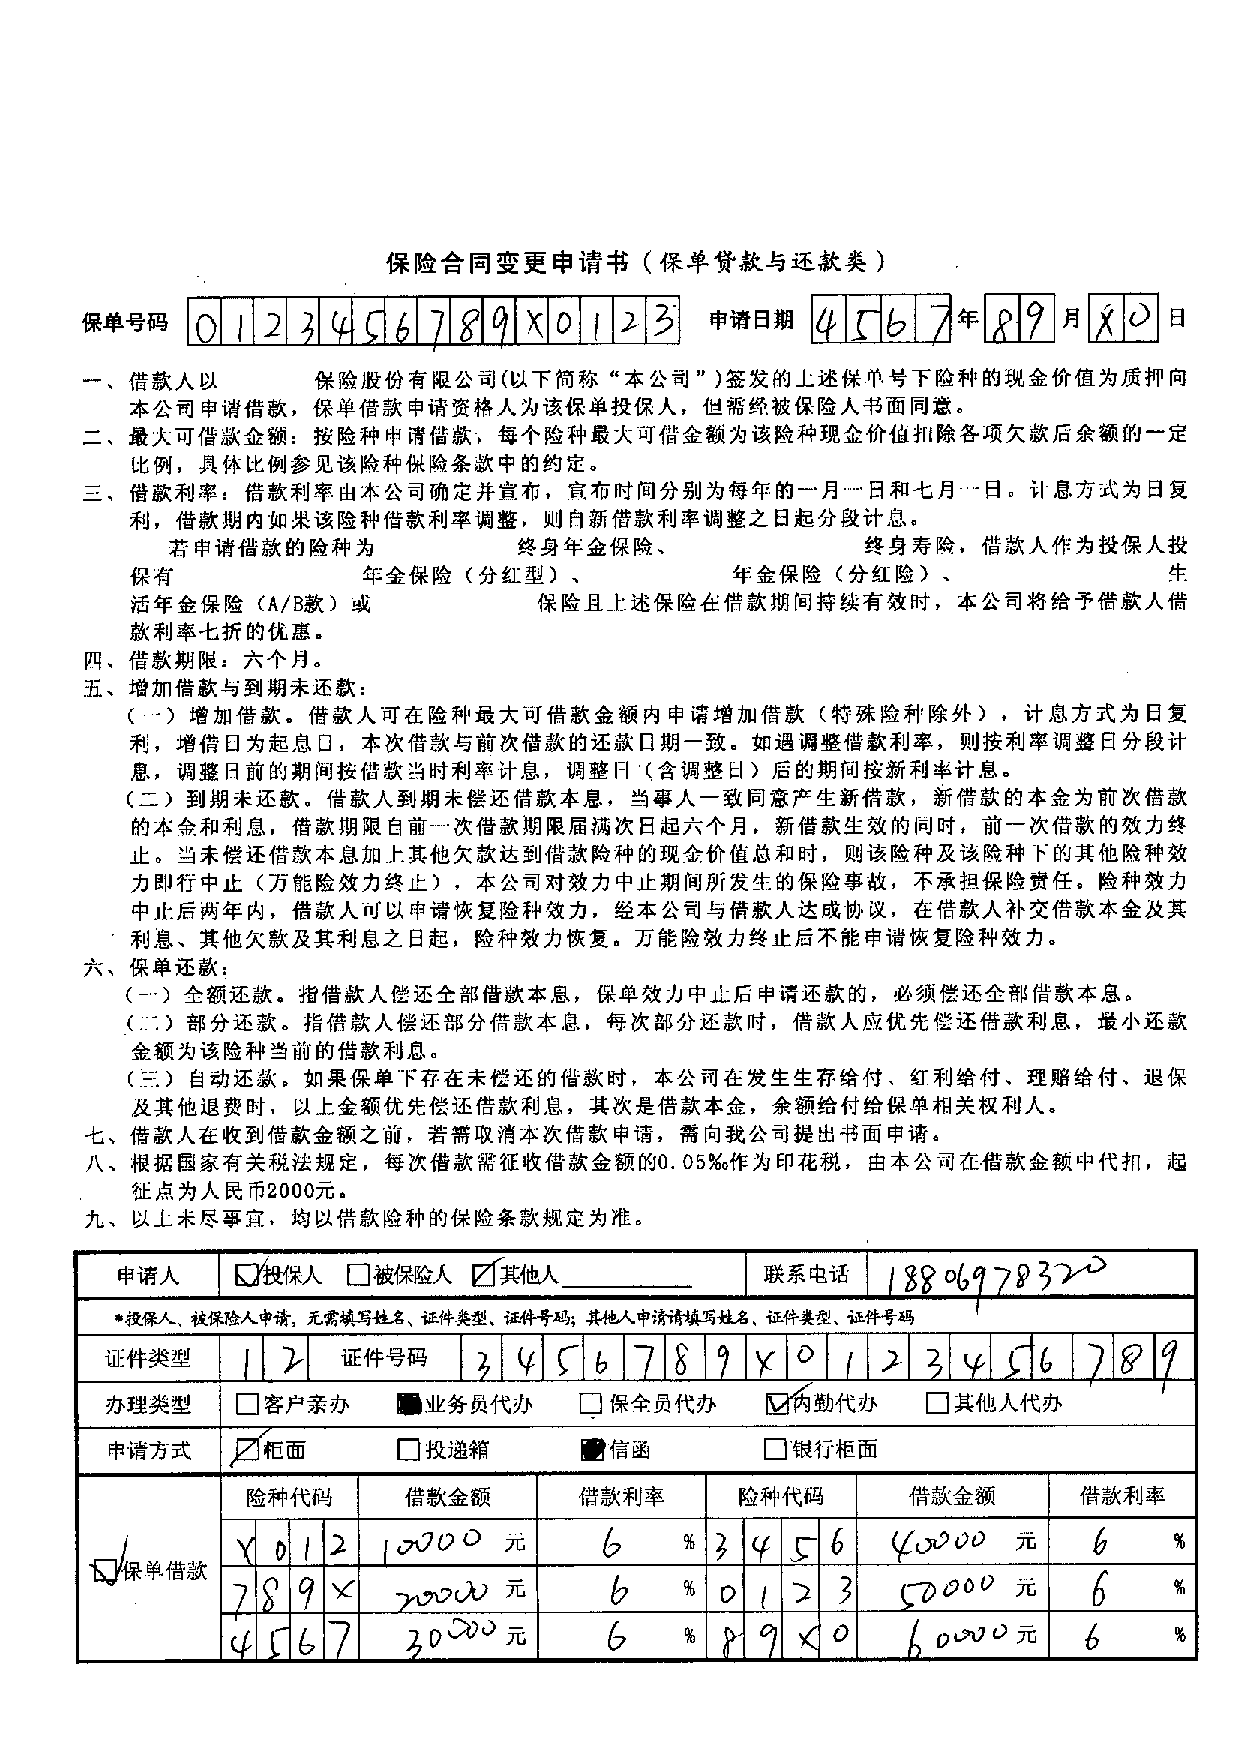 保险合同变更申请书（保单贷款与还款类）
保单号码 0123456789X0123 申请日期 4567年89月X0日
一、借款人以 保险股份有限公司(以下简称“本公司”)签发的上述保单号下险种的现金价值为质押向
本公司申请借款，保单借款申请资格人为该保单投保人，但需经被保险人书面同意。
二、最大可借款金额：按险种申请借款，每个险种最大可借金额为该险种现金价值扣除各项欠款后余额的一定
比例，具体比例参见该险种保险条款中的约定。
三、借款利率：借款利率由本公司确定并宣布，宣布时间分别为每年的一月一日和七月一日。计息方式为日复
利，借款期内如果该险种借款利率调整，则自新借款利率调整之日起分段计息。
若申请借款的险种为 终身年金保险、 终身寿险，借款人作为投保人投
保有 年金保险（分红型）、 年金保险（分红险）、 生
活年金保险（A/B款）或 保险且上述保险在借款期间持续有效时，本公司将给予借款人借
款利率七折的优惠。
四、借款期限：六个月。
五、增加借款与到期未还款：
（一）增加借款。借款人可在险种最大可借款金额内申请增加借款（特殊险种除外），计息方式为日复
利，增借日为起息日，本次借款与前次借款的还款日期一致。如遇调整借款利率，则按利率调整日分段计
息，调整日前的期间按借款当时利率计息，调整日（含调整日）后的期间按新利率计息。
（二）到期未还款。借款人到期未偿还借款本息，当事人一致同意产生新借款，新借款的本金为前次借款
的本金和利息，借款期限自前一次借款期限届满次日起六个月，新借款生效的同时，前一次借款的效力终
止。当未偿还借款本息加上其他欠款达到借款险种的现金价值总和时，则该险种及该险种下的其他险种效
力即行中止（万能险效力终止），本公司对效力中止期间所发生的保险事故，不承担保险责任。险种效力
中止后两年内，借款人可以申请恢复险种效力，经本公司与借款人达成协议，在借款人补交借款本金及其
利息、其他欠款及其利息之日起，险种效力恢复。万能险效力终止后不能申请恢复险种效力。
六、保单还款：
（一）全额还款。指借款人偿还全部借款本息，保单效力中止后申请还款的，必须偿还全部借款本息。
（二）部分还款。指借款人偿还部分借款本息，每次部分还款时，借款人应优先偿还借款利息，最小还款
金额为该险种当前的借款利息。
（三）自动还款。如果保单下存在未偿还的借款时，本公司在发生生存给付、红利给付、理赔给付、退保
及其他退费时，以上金额优先偿还借款利息，其次是借款本金，余额给付给保单相关权利人。
七、借款人在收到借款金额之前，若需取消本次借款申请，需向我公司提出书面申请。
八、根据国家有关税法规定，每次借款需征收借款金额的0.05‰作为印花税，由本公司在借款金额中代扣，起
征点为人民币2000元。
九、以上未尽事宜，均以借款险种的保险条款规定为准。
申请人 ☑投保人 □被保险人 ☑其他人 联系电话 18806978320
*投保人、被保险人申请，无需填写姓名、证件类型、证件号码；其他人申请请填写姓名、证件类型、证件号码
证件类型 12 证件号码 3456789X0123456789
办理类型 □客户亲办 ■业务员代办 □保全员代办 ☑内勤代办 □其他人代办
申请方式 ☑柜面 □投递箱 ■信函 □银行柜面
险种代码 借款金额 借款利率 险种代码 借款金额 借款利率
X012 10000元 6% 3456 40000元 6%
☑保单借款 789X 20000元 6% 0123 50000元 6%
4567 30000元 6% 89X0 60000元 6%